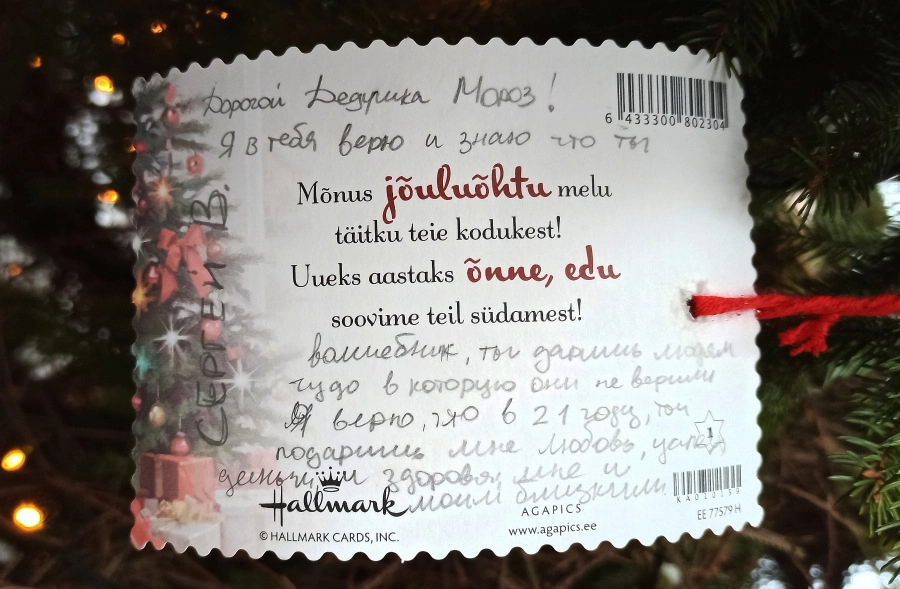 Дорогой Дедушка Мороз!
6 433300 802304
Я в тебя верю и знаю что ты
Mõnus jõuluõhtu melu
täitku teie kodukest!
Uueks aastaks õnne, edu
soovime teil südamest!
волшебник, ты даришь людям
чудо в которую они не верили
Я верю, что в 21 году, ты
подаришь мне любовь,
1
деньги и здоровья мне и
моим близким
СЕРГЕЙ В.
Hallmark
© HALLMARK CARDS, INC.
AGAPICS
www.agapics.ee
EE 77579 H